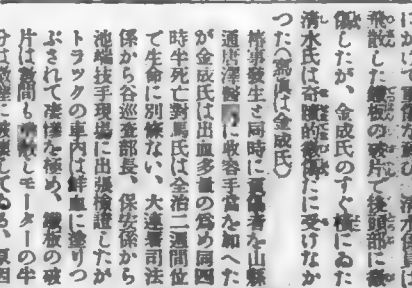 飛散した鐵板の破片で後頭部に
傷したが、金成氏のすぐ橫にゐた
淸水氏は奇蹟的に受けなか
つた（寫眞は金成氏）
椿事發生と同時に重傷者を山縣
通唐澤醫院に收容手當を加へた
が金成氏は出血多量の爲め同四
時半死亡對馬氏は全治二週間位
で生命に別條ない、大連署司法
係から谷巡査部長、保安係から
池端技手現場に出張檢證したが
トラックの車內は鮮血に塗りつ
ぶされて凄慘を極め、鐵板の破
片は數間も飛散しモーターの半
分は